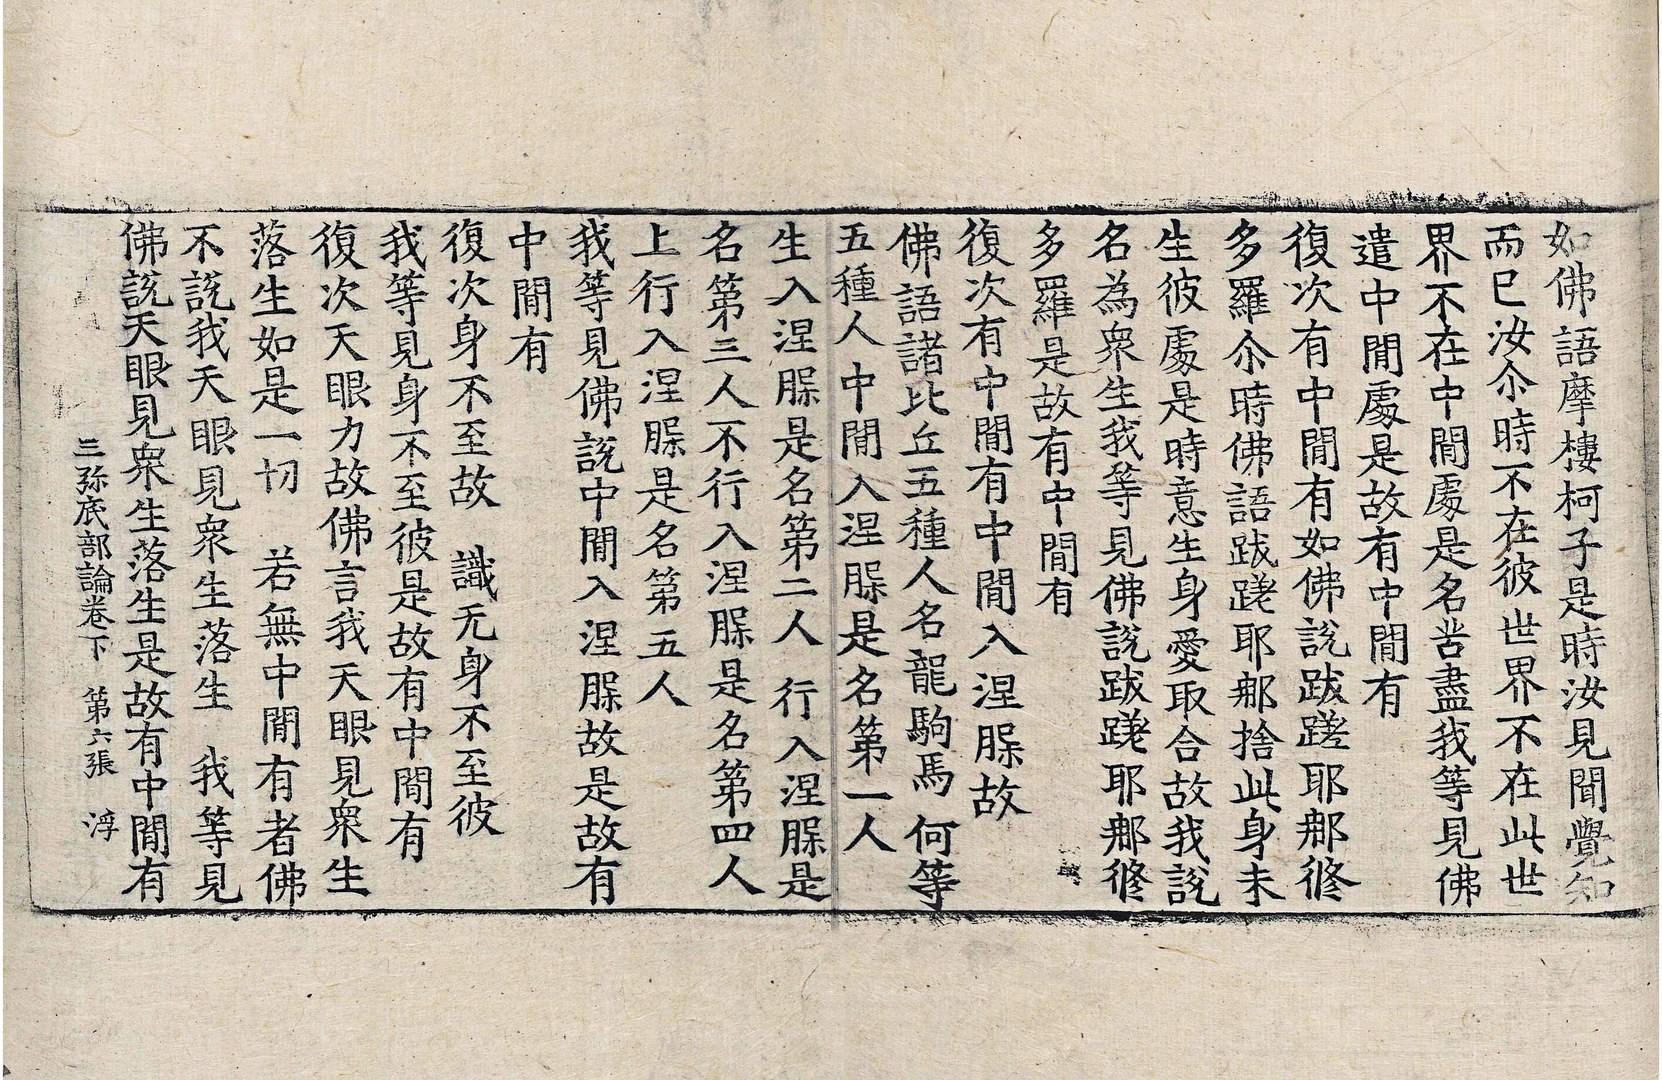 如佛語摩樓柯子是時汝見聞覺知
而已汝尒時不在彼世界不在此世
界不在中閒處是名苦盡我等見佛
遣中閒處是故有中閒有
復次有中閒有如佛說跋蹉耶郍修
多羅尒時佛語跋蹉耶郍捨此身未
生彼處是時意生身愛取合故我說
名為衆生我等見佛說跋蹉耶郍修
多羅是故有中閒有
復次有中閒有中閒入涅脲故
佛語諸比丘五種人名龍駒馬 何等
五種人中閒入涅脲是名第一人
生入涅脲是名第二人 行入涅脲是
名第三人不行入涅脲是名第四人
上行入涅脲是名第五人
我等見佛說中閒入涅脲故是故有
中閒有
復次身不至故 識无身不至彼
我等見身不至彼是故有中閒有
復次天眼力故佛言我天眼見衆生
落生如是一切 若無中閒有者佛
不說我天眼見衆生落生 我等見
佛說天眼見衆生落生是故有中閒有
三弥底部論卷下 第六張 浮